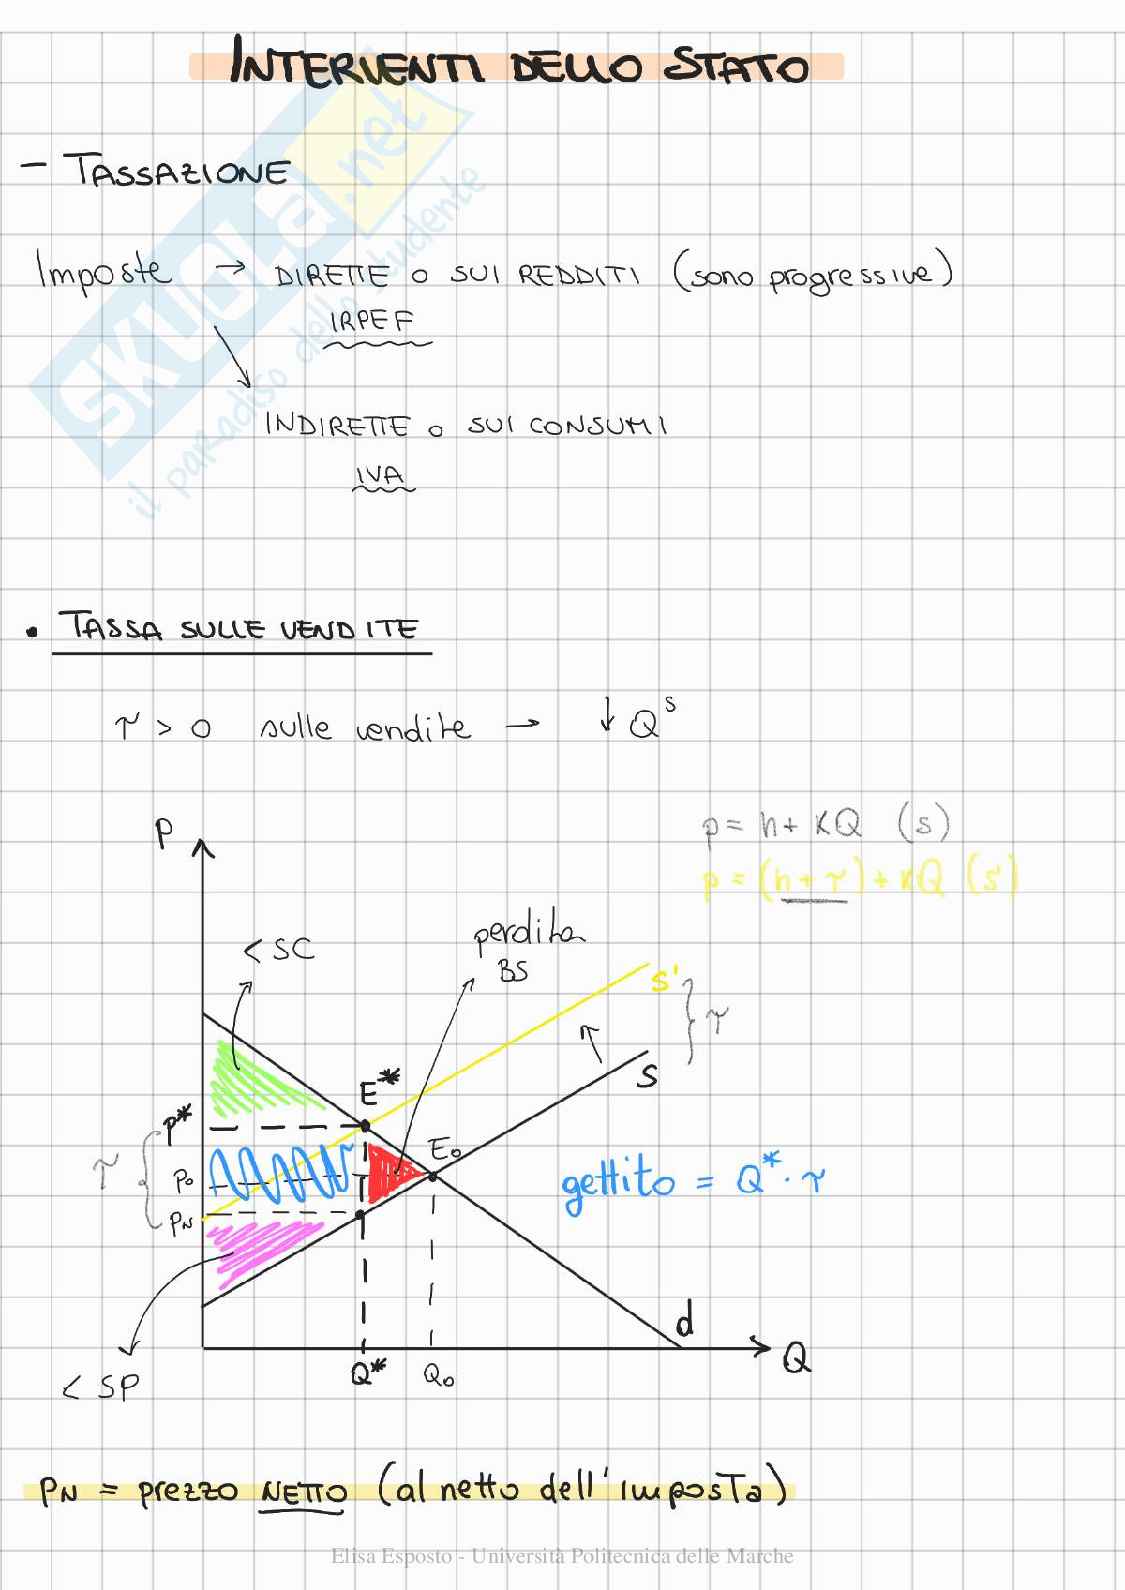 INTERVENTI DELLO STATO
- TASSAZIONE
Imposte → DIRETTE o SUI REDDITI (sono progressive)
IRPEF
INDIRETTE o SUI CONSUMI
IVA
SKUOLA.net
il paradiso dello studente
• TASSA SULLE VENDITE
τ > 0 sulle vendite → ↓ Qˢ
p = h + KQ (s)
p = (h + τ) + KQ (s')
P
< SC
perdita
BS
s'
τ
s
E*
P*
E₀
τ
P₀
gettito = Q* · τ
PN
d
Q
Q*
Q₀
< SP
PN = prezzo NETTO (al netto dell'imposta)
Elisa Esposto - Università Politecnica delle Marche